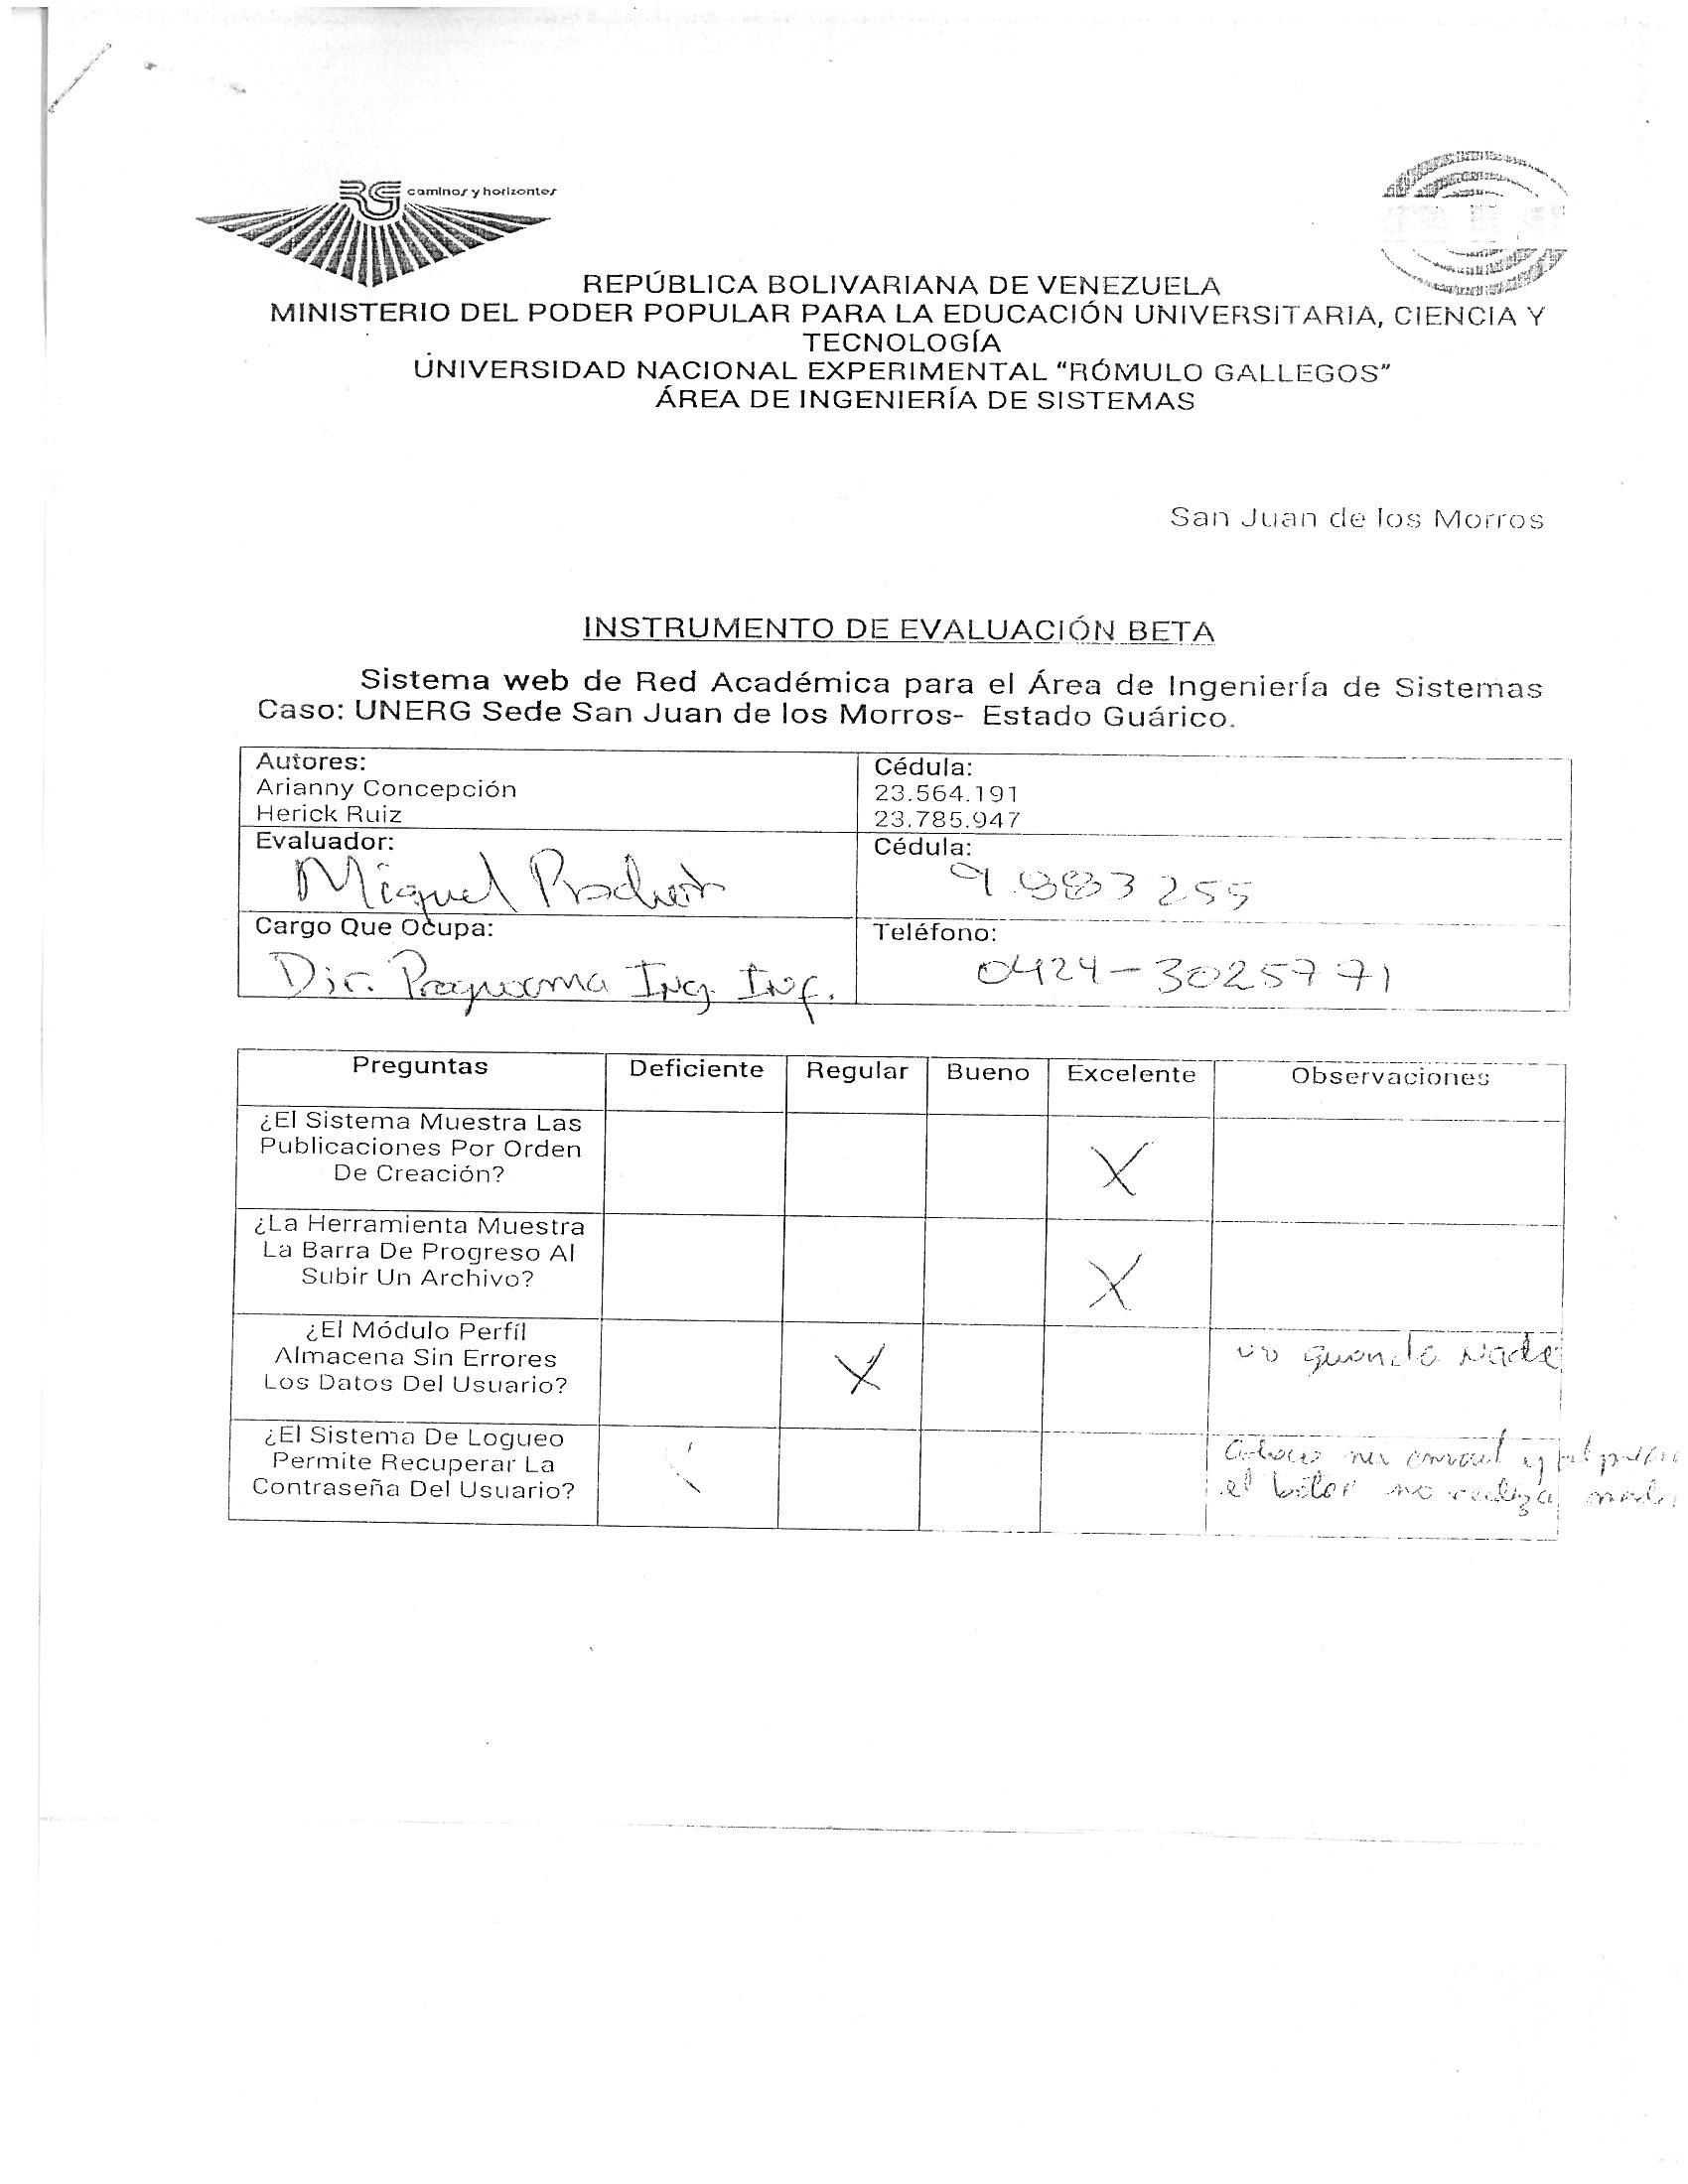 caminos y horizontes
REPÚBLICA BOLIVARIANA DE VENEZUELA
MINISTERIO DEL PODER POPULAR PARA LA EDUCACIÓN UNIVERSITARIA, CIENCIA Y
TECNOLOGÍA
UNIVERSIDAD NACIONAL EXPERIMENTAL "RÓMULO GALLEGOS"
ÁREA DE INGENIERÍA DE SISTEMAS
San Juan de los Morros
INSTRUMENTO DE EVALUACIÓN BETA
Sistema web de Red Académica para el Área de Ingeniería de Sistemas
Caso: UNERG Sede San Juan de los Morros- Estado Guárico.
Autores:
Arianny Concepción
Herick Ruiz
Cédula:
23.564.191
23.785.947
Evaluador:
Miguel
Cédula:
9.883 255
Cargo Que Ocupa:
Dir. Programa Ing. Inf.
Teléfono:
0424-3025771
Preguntas Deficiente Regular Bueno Excelente Observaciones
¿El Sistema Muestra Las
Publicaciones Por Orden
De Creación?
X
¿La Herramienta Muestra
La Barra De Progreso Al
Subir Un Archivo?
X
¿El Módulo Perfíl
Almacena Sin Errores
Los Datos Del Usuario?
X
no guarda nada
¿El Sistema De Logueo
Permite Recuperar La
Contraseña Del Usuario?
mi email y al
el no realiza nada